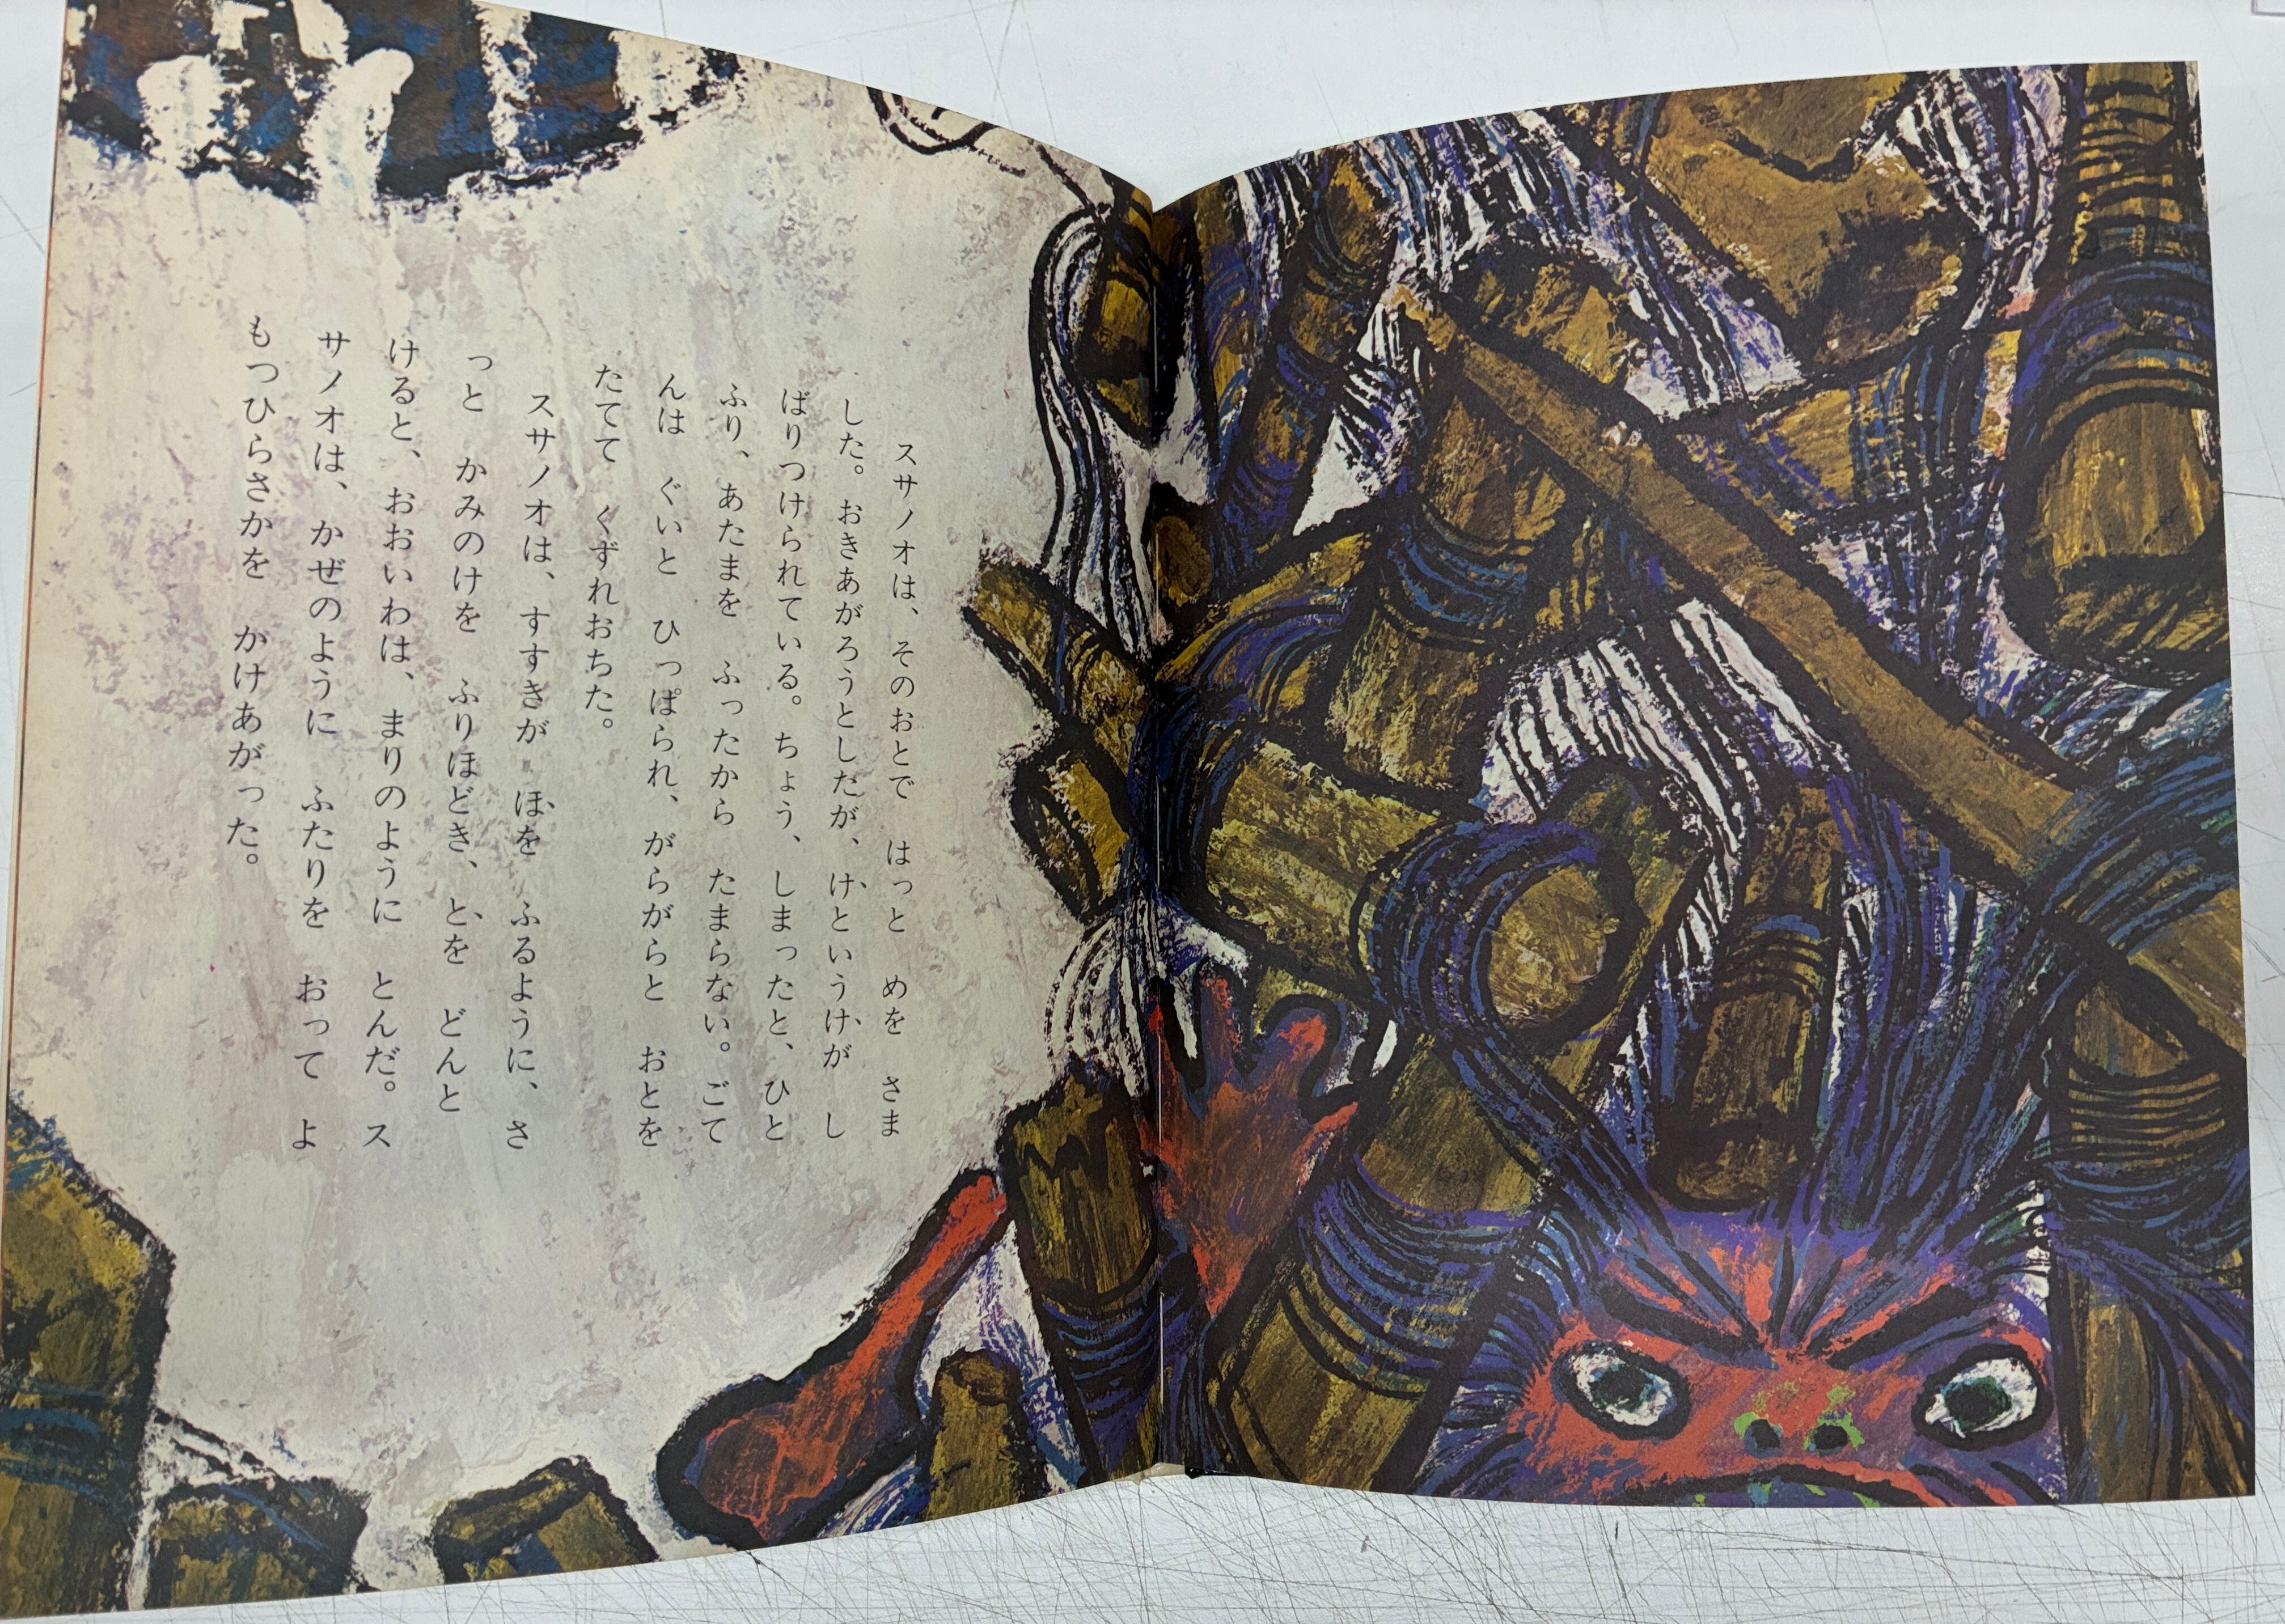 スサノオは、そのおとで　はっと　めを　さま
した。おきあがろうとしたが、けというけが　し
ばりつけられている。ちょう、しまったと、ひと
ふり、あたまを　ふったから　たまらない。ごて
んは　ぐいと　ひっぱられ、がらがらと　おとを
たてて　くずれおちた。
スサノオは、すすきが　ほを　ふるように、さ
っと　かみのけを　ふりほどき、とを　どんと
けると、おおいわは、まりのように　とんだ。ス
サノオは、かぜのように　ふたりを　おって　よ
もつひらさかを　かけあがった。